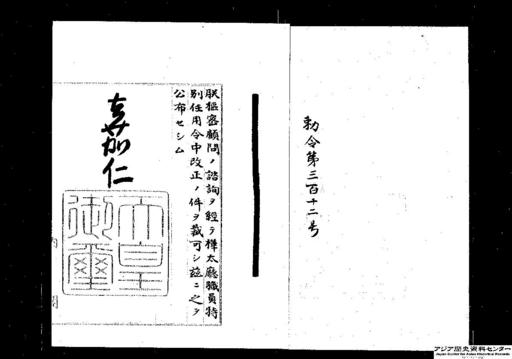 勅令第三百十二号
朕枢密顧問ノ諮詢ヲ経テ樺太庁職員特
別任用令中改正ノ件ヲ裁可シ茲ニ之ヲ
公布セシム
嘉仁
天皇
御璽
アジア歴史資料センター
Japan Center for Asian Historical Records